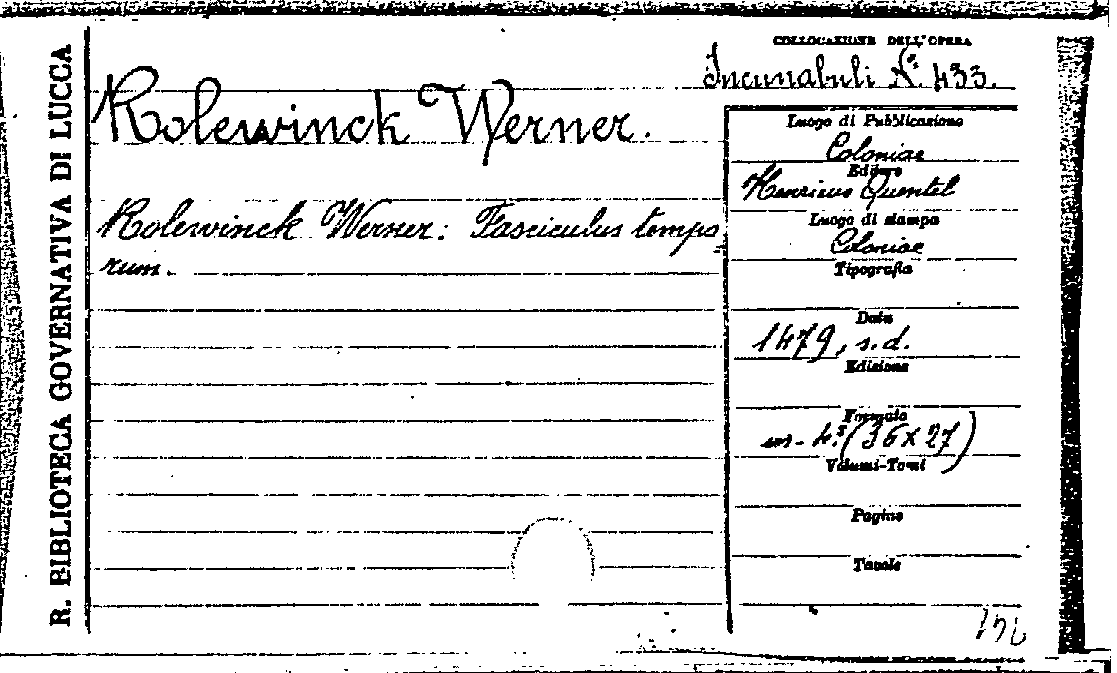 R. BIBLIOTECA GOVERNATIVA DI LUCCA
COLLOCAZIONE DELL'OPERA
Incunabuli N.º 433.
Rolewinck Werner.
Rolewinck Werner: Fasciculus tempo
rum.
Luogo di Pubblicazione
Coloniae
Editore
Henricus Quentel
Luogo di stampa
Coloniae
Tipografia
Data
1479, s.d.
Edizione
Formato
in-4.º (36x27)
Volumi-Tomi
Pagine
Tavole